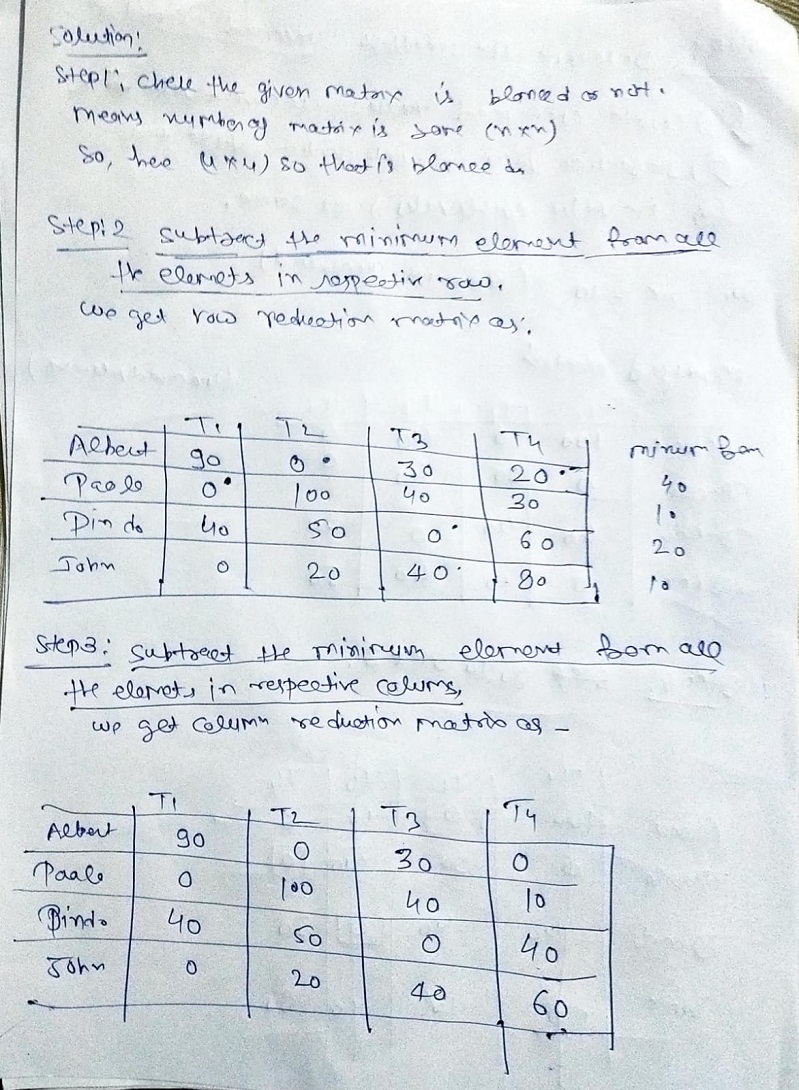 Solution:
Step1: Chek the given matrix is blanced or not.
means number of matrix is same (n×n)
So, hee (4×4) so that is blance d.
Step:2 Subtract the minimum element from all
the elemets in respective row.
we get row reduction matrix as:
T1 T2 T3 T4 minum from
Albert 90 0 30 20 40
Paalo 0 100 40 30 10
Dindo 40 50 0 60 20
John 0 20 40 80 10
Step3: Subtract the minimum element from all
the elemets in respective colums,
we get column reduction matrix as -
T1 T2 T3 T4
Albert 90 0 30 0
Paalo 0 100 40 10
Dindo 40 50 0 40
John 0 20 40 60